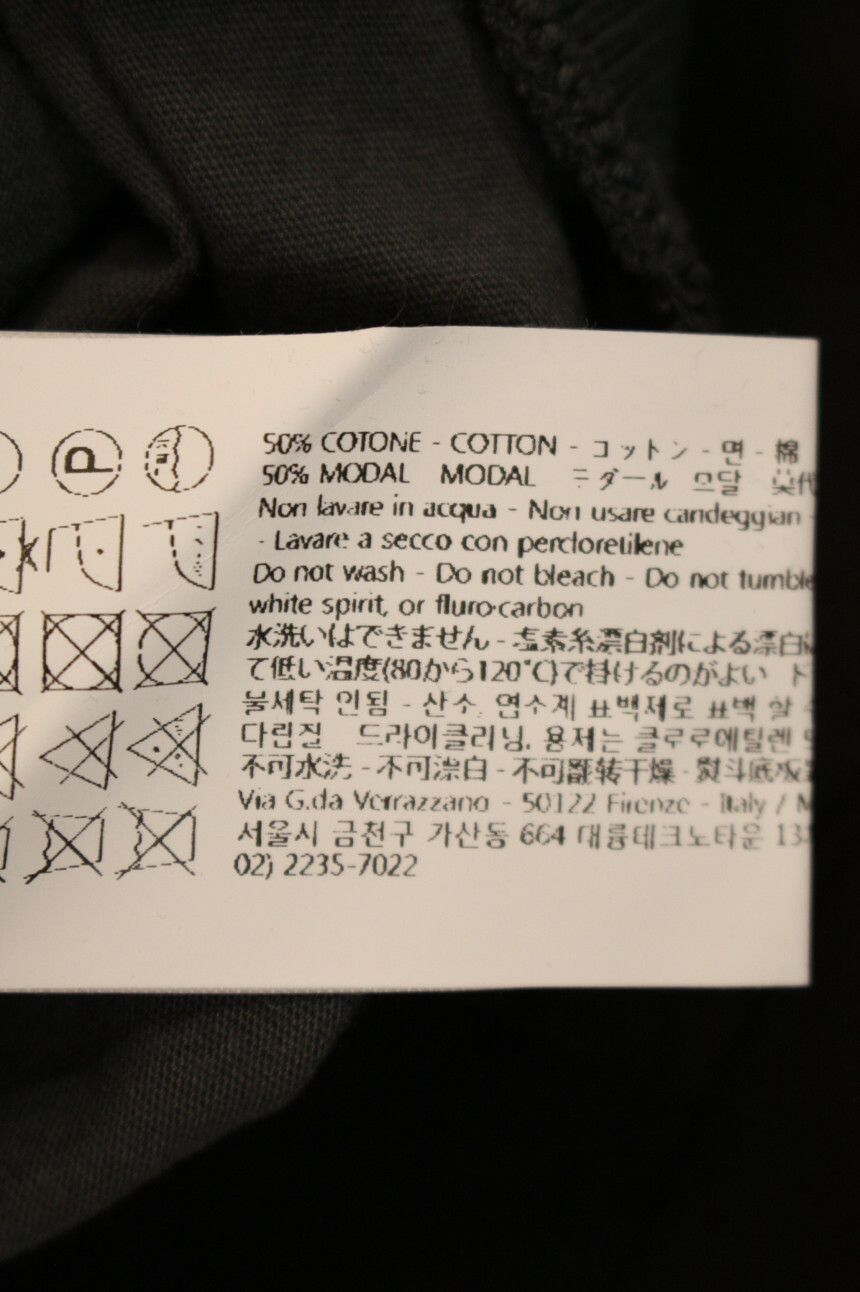 P
50% COTONE - COTTON - コットン - 면 - 棉
50% MODAL MODAL モダール 모달
Non lavare in acqua - Non usare candeggian
- Lavare a secco con percloretilene
Do not wash - Do not bleach - Do not tumble
white spirit, or flurocarbon
水洗いはできません - 塩素系漂白剤による漂白
て低い温度(80から120°C)で掛けるのがよい ド
물세탁 안됨 - 산소, 염소계 표백제로 표백 할
다림질 드라이클리닝, 용제는 클로로에틸렌
不可水洗 - 不可漂白 - 不可翻转干燥 - 熨斗底板
Via G.da Verrazzano - 50122 Firenze - Italy / M
서울시 금천구 가산동 664 대륭테크노타운 13
02) 2235-7022